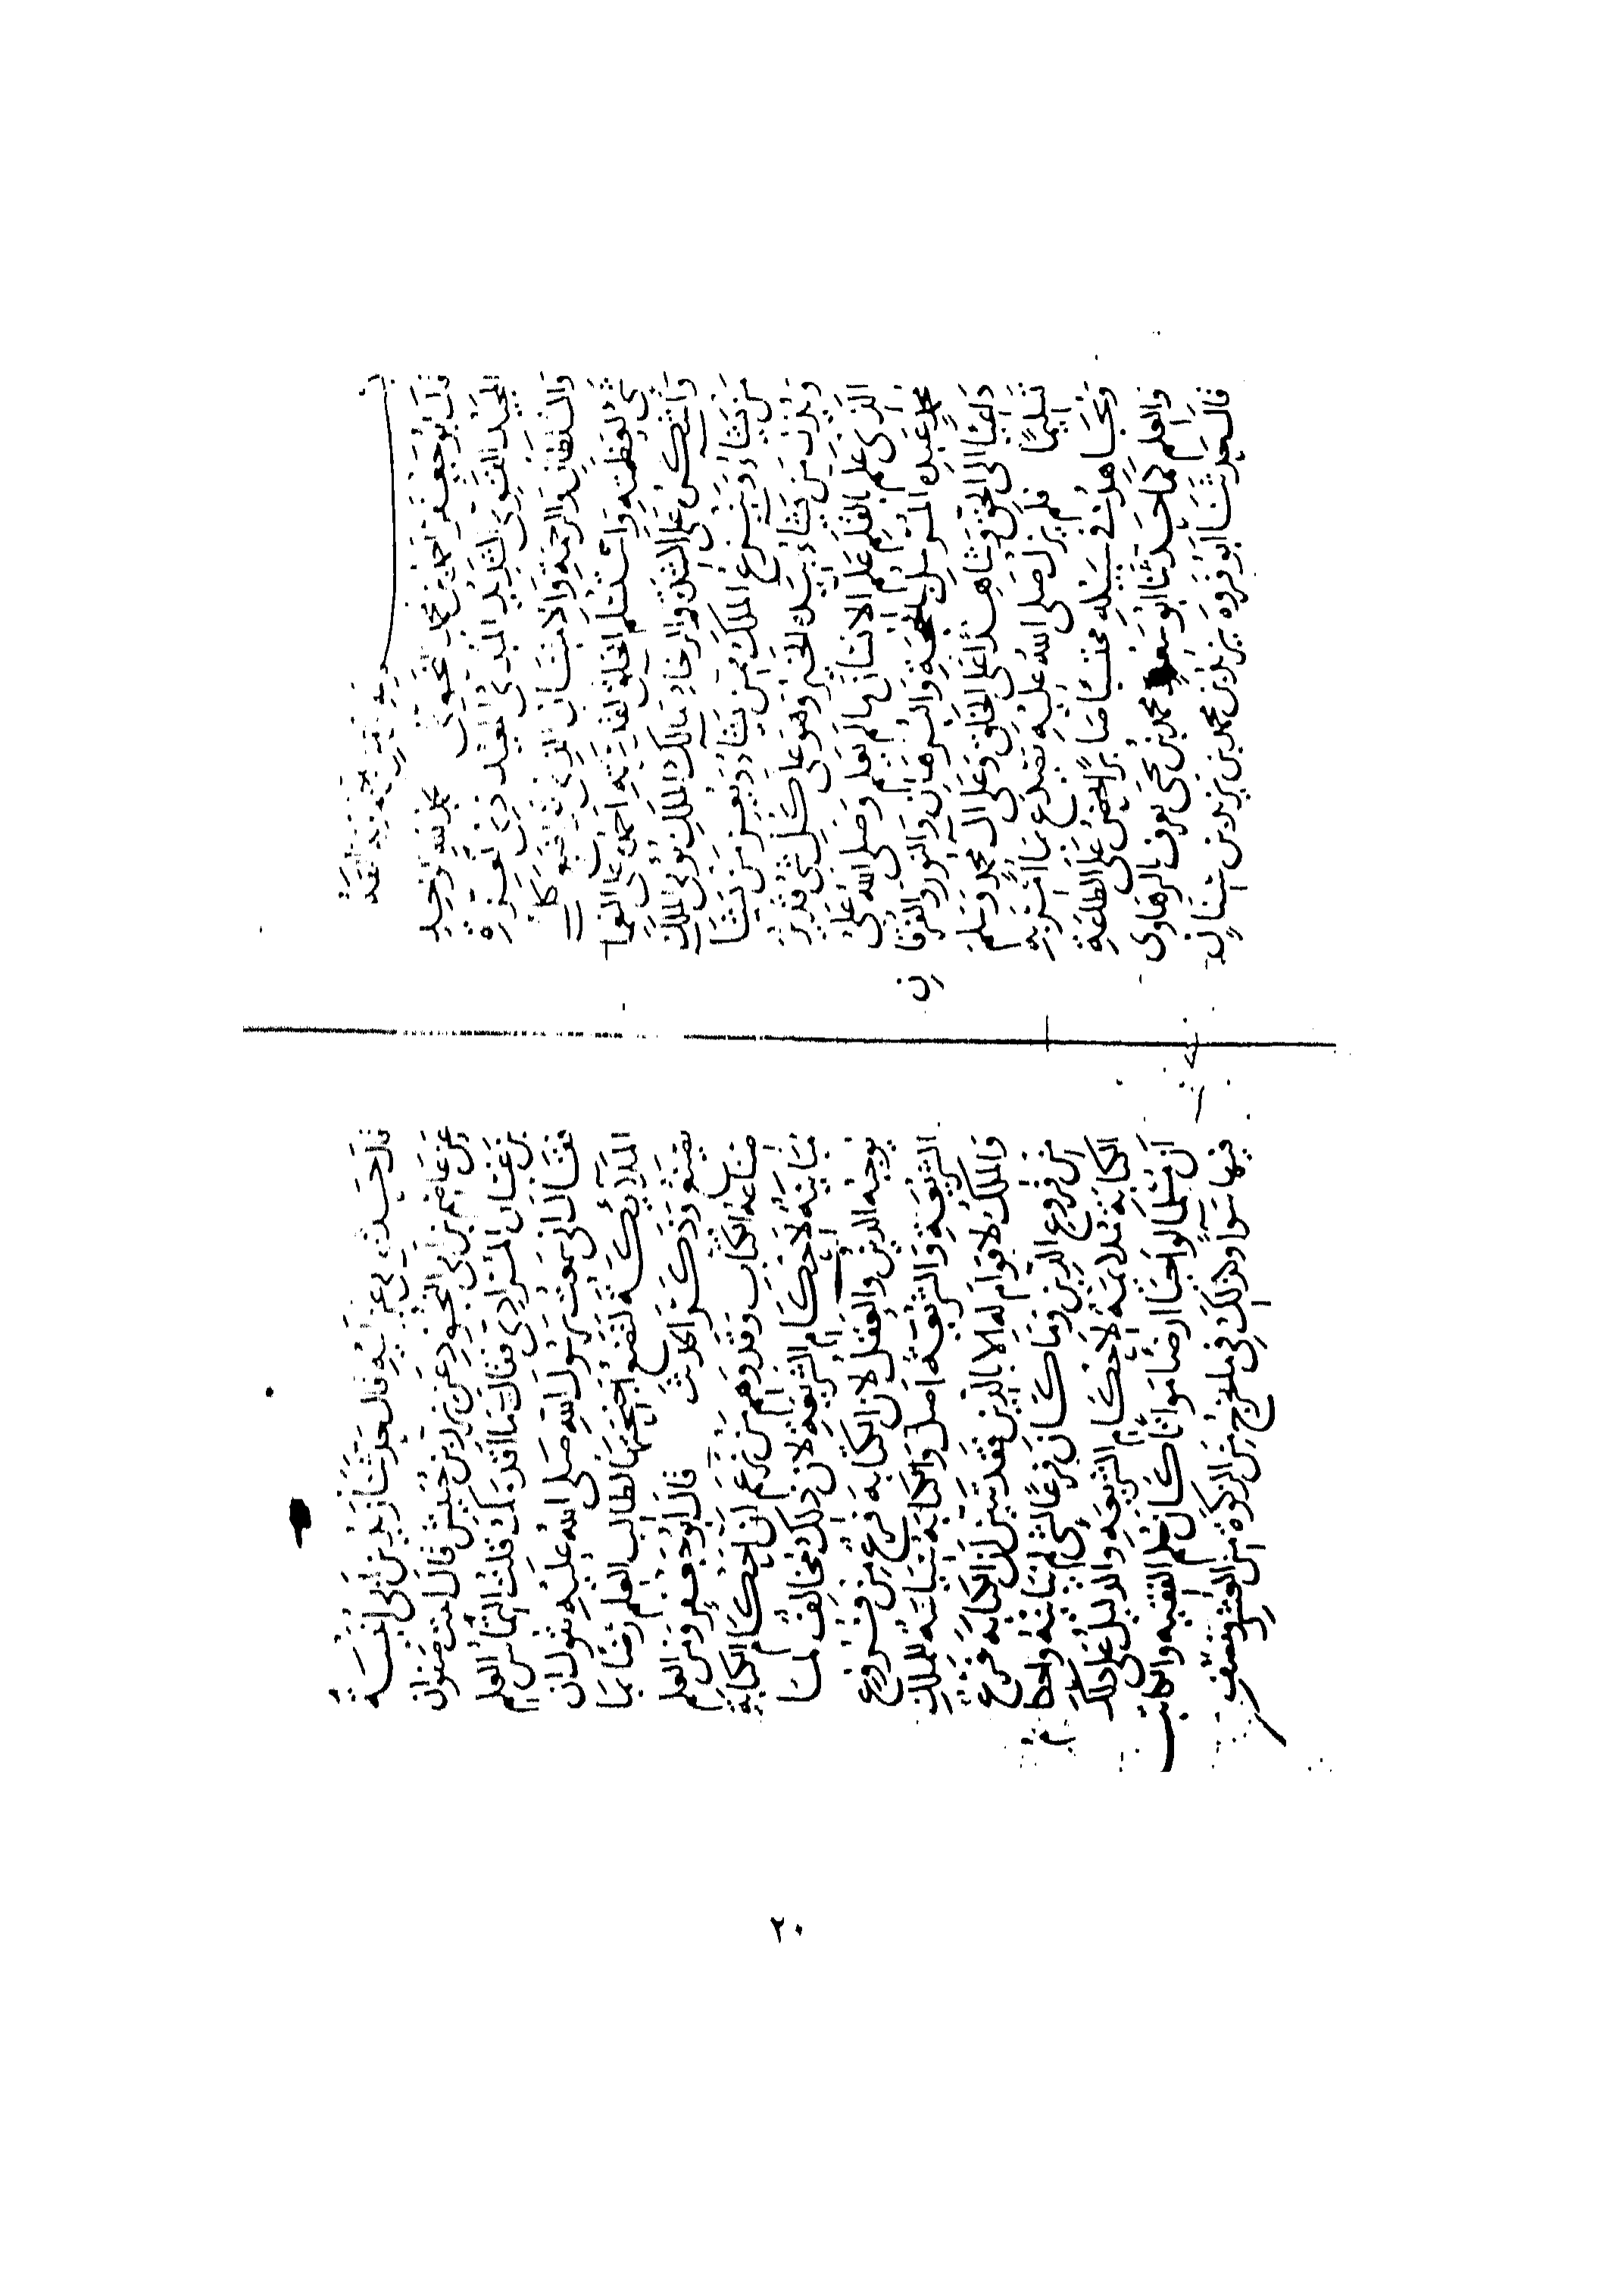 قال أبو جعفر أحمد بن محمد النحوي الحمد لله الواحد
المجيد القوي الشديد المبدئ المعيد ذي العزة
والسلطان والرحمة والامتنان الذي
شيء لعظمته واستسلم الخلق لقدرته أحمده على النعما
وأشكره على الشدة والرخاء مالك الملك يؤتي الملك
من يشاء وينزع الملك ممن يشاء ويعز من يشا
ويذل من يشاء بيده الخير وهو على كل شيء قدير
الذي علم بالقلم علم الانسان ما لم يعلم وصلى الله على
محمد عبده المرسل بالحجة والبرهان والنور والفرقان
داعيا الى الحق وشاهدا على الخلق وعلى آل محمد وسلم
تسليما فلم يزل صلى الله عليه يصدع بما امر به
ويجاهد في سبيله محتسبا صابرا يحض على الطاعة
والعلم كما حدثنا ابو محمد بن يحيى يعرف بالرهاوي
قال حدثنا ابو فروة يزيد بن محمد بن يزيد بن سنان
قال حدثني ابي عن ابيه قال حدثنا زيد بن أبي أنيسة
عن عاصم بن أبي النجود عن زر بن حبيش قال أتيت صفوان
بن عسال المرادي فقال ما أقدمك قلت التماس العلم
فقال اني سمعت رسول الله صلى الله عليه يقول ان
الملائكة لتضع أجنحتها لطالب العلم رضا بما
يصنع وذكر الحديث قال أبو جعفر ومن العلم
صناعة الكتاب وقد وهم من زعم أن احكام الكتابة
مباينة لأحكام الشريعة لأن ذلك مخالف لما
يوجبه الدين والعقل لان الكتابة فرع من فروع
الشريعة والشريعة أصل والكتابة سياسة للملك
والملك لا قوام له إلا بالدين فقد تبين أن الكتابة فرع
من فروع الدين وما كان فرعا لشيء لم يباينه وأحكام
الكتابة ملائمة لأحكام الشريعة والدليل على ذلك
أن مسلما لو أحيا أرضا مواتا كان حكم الفقيه والكاتب
فيها سواء وكذلك في ما يخرج من الزكوة من العشر ونصف
٢٠